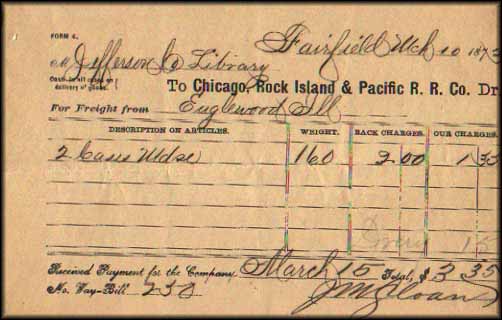 FORM 4.
Fairfield Mch 10 1873
M Jefferson Co Library
Cash in all cases on
delivery of goods.
To Chicago, Rock Island & Pacific R. R. Co. Dr
For Freight from Englewood Ill
DESCRIPTION ON ARTICLES. WEIGHT. BACK CHARGES. OUR CHARGES.
2 Cases Mdse 160 2 00 1 35
15
Received Payment for the Company, March 15 Total, $ 3 35
No. Way-Bill 230 J M Sloan